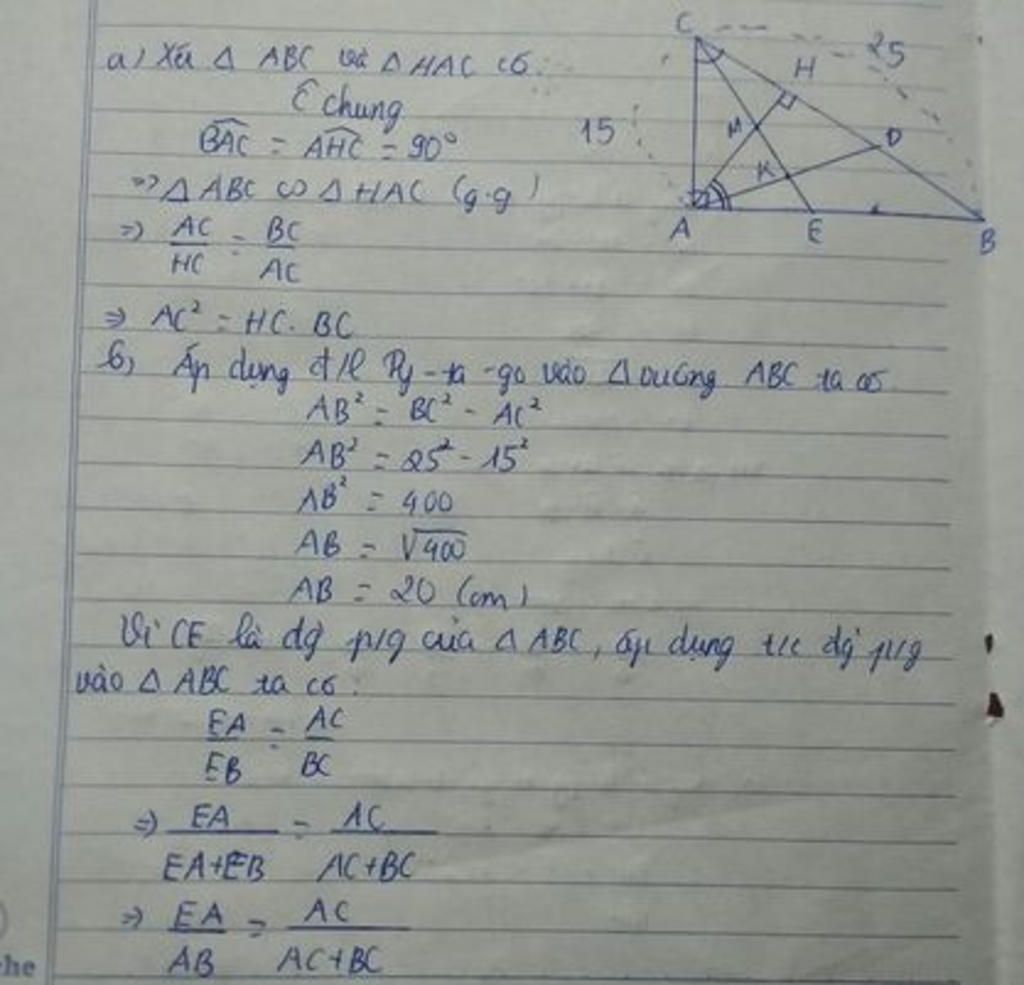 a) Xét △ ABC và △ HAC có:
Ĉ chung
BAC = AHC = 90°
=> △ ABC ∽ △ HAC (g.g)
=> AC/HC = BC/AC
=> AC² = HC. BC
b) Áp dụng đ/l Py-ta-go vào △ vuông ABC ta có
AB² = BC² - AC²
AB² = 25² - 15²
AB² = 400
AB = √400
AB = 20 (cm)
Vì CE là đg p/g của △ ABC, áp dụng t/c đg p/g
vào △ ABC ta có:
EA/EB = AC/BC
=> EA/EA+EB = AC/AC+BC
=> EA/AB = AC/AC+BC
C
25
H
15
M
D
K
A
E
B
he